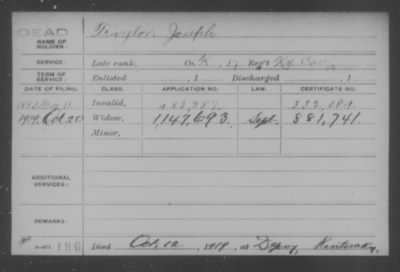 DEAD
NAME OF SOLDIER: Traylor, Joseph
SERVICE: Late rank, Co. K, 17 Reg't Ky. Cav.
TERM OF SERVICE: Enlisted , 1 Discharged , 1
DATE OF FILING. CLASS. APPLICATION NO. LAW. CERTIFICATE NO.
Invalid,
1919, Oct 20 Widow, 1,147,693. Sept. 881,741.
Minor,
ADDITIONAL SERVICES:
REMARKS:
Died Oct 12, 1919, at Depoy, Kentucky.